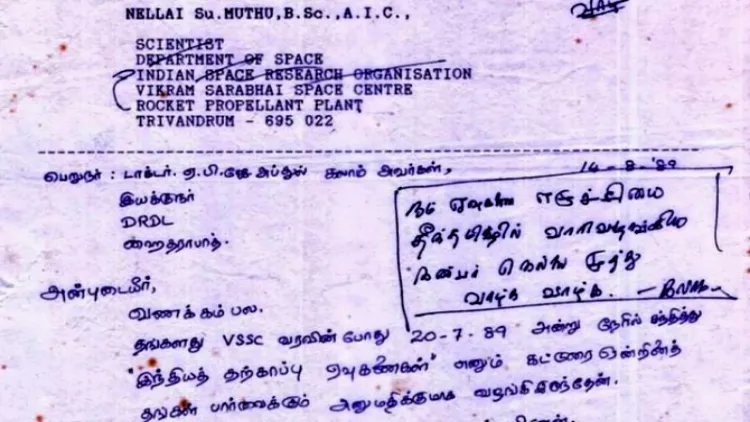 NELLAI Su.MUTHU,B.Sc.,A.I.C.,
SCIENTIST
DEPARTMENT OF SPACE
INDIAN SPACE RESEARCH ORGANISATION
VIKRAM SARABHAI SPACE CENTRE
ROCKET PROPELLANT PLANT
TRIVANDRUM - 695 022
பெறுநர் : டாக்டர். ஏ.பி.ஜே அப்துல் கலாம் அவர்கள்,
14-8-'89
இயக்குநர்
DRDL
ஹைதராபாத்.
நம் ஏவுகணை எழுச்சியை
தீந்தமிழில்
நண்பர் நெல்லை சு முத்து
வாழ்க வாழ்க.
அன்புடையீர்,
வணக்கம் பல.
தங்களது VSSC வரவின் போது 20-7-89 அன்று நேரில் சந்தித்து
"இந்தியத் தற்காப்பு ஏவுகணைகள்" எனும் கட்டுரை ஒன்றினைத்
தங்கள் பார்வைக்கும் அனுமதிக்குமாக வழங்கியிருந்தேன்.